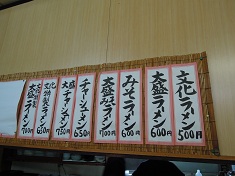 文化ラーメン 500円
大盛ラーメン 600円
みそラーメン 600円
大盛みそラーメン 700円
チャーシューメン 650円
大盛チャーシューメン 750円
文化特製ラーメン 650円
ラーメン 700円